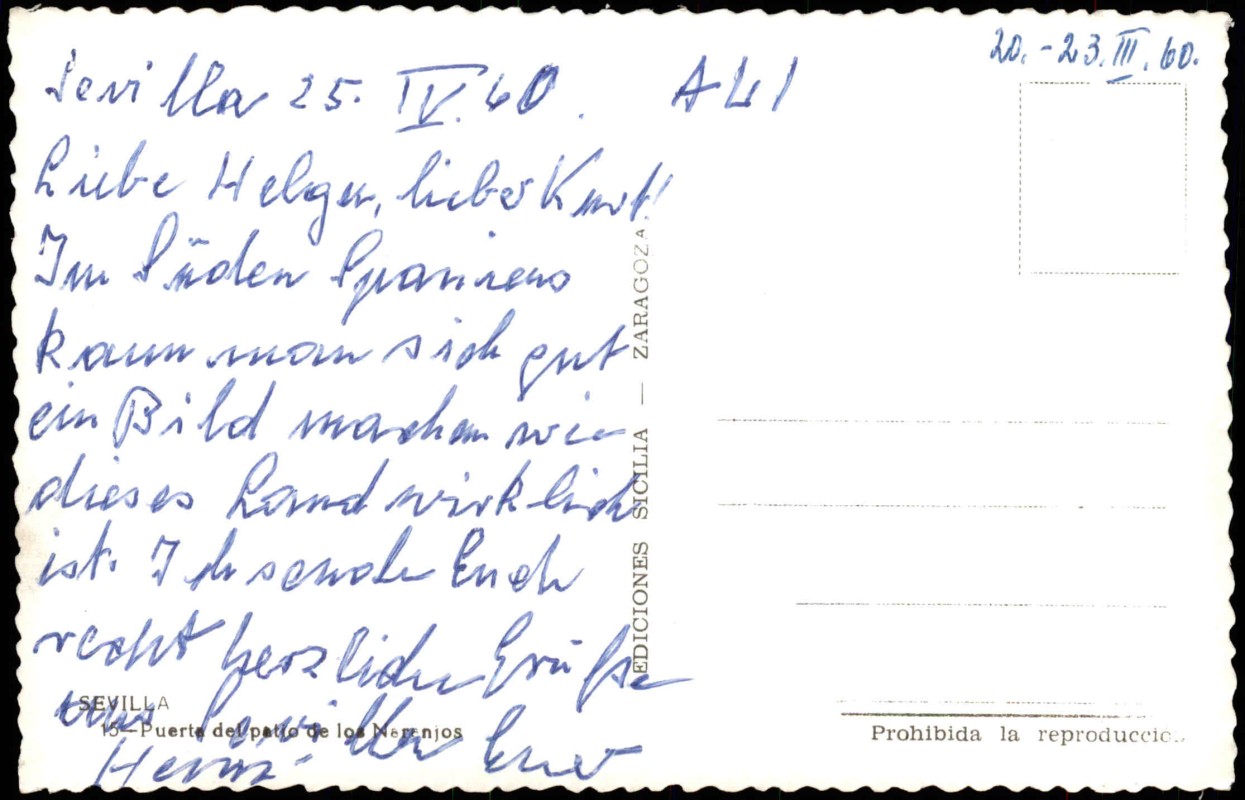 20.-23.III.60.
Sevilla 25. IV. 60. A41
Liebe Helga, lieber Kurt!
Im Süden Spaniens
kann man sich gut
ein Bild machen wie
dieses Land wirklich
ist. Ich sende Euch
recht herzliche Grüße
aus Sevilla Euer
Heinz
SEVILLA
15—Puerta del patio de los Narenjos
EDICIONES SICILIA — ZARAGOZA
Prohibida la reproducción